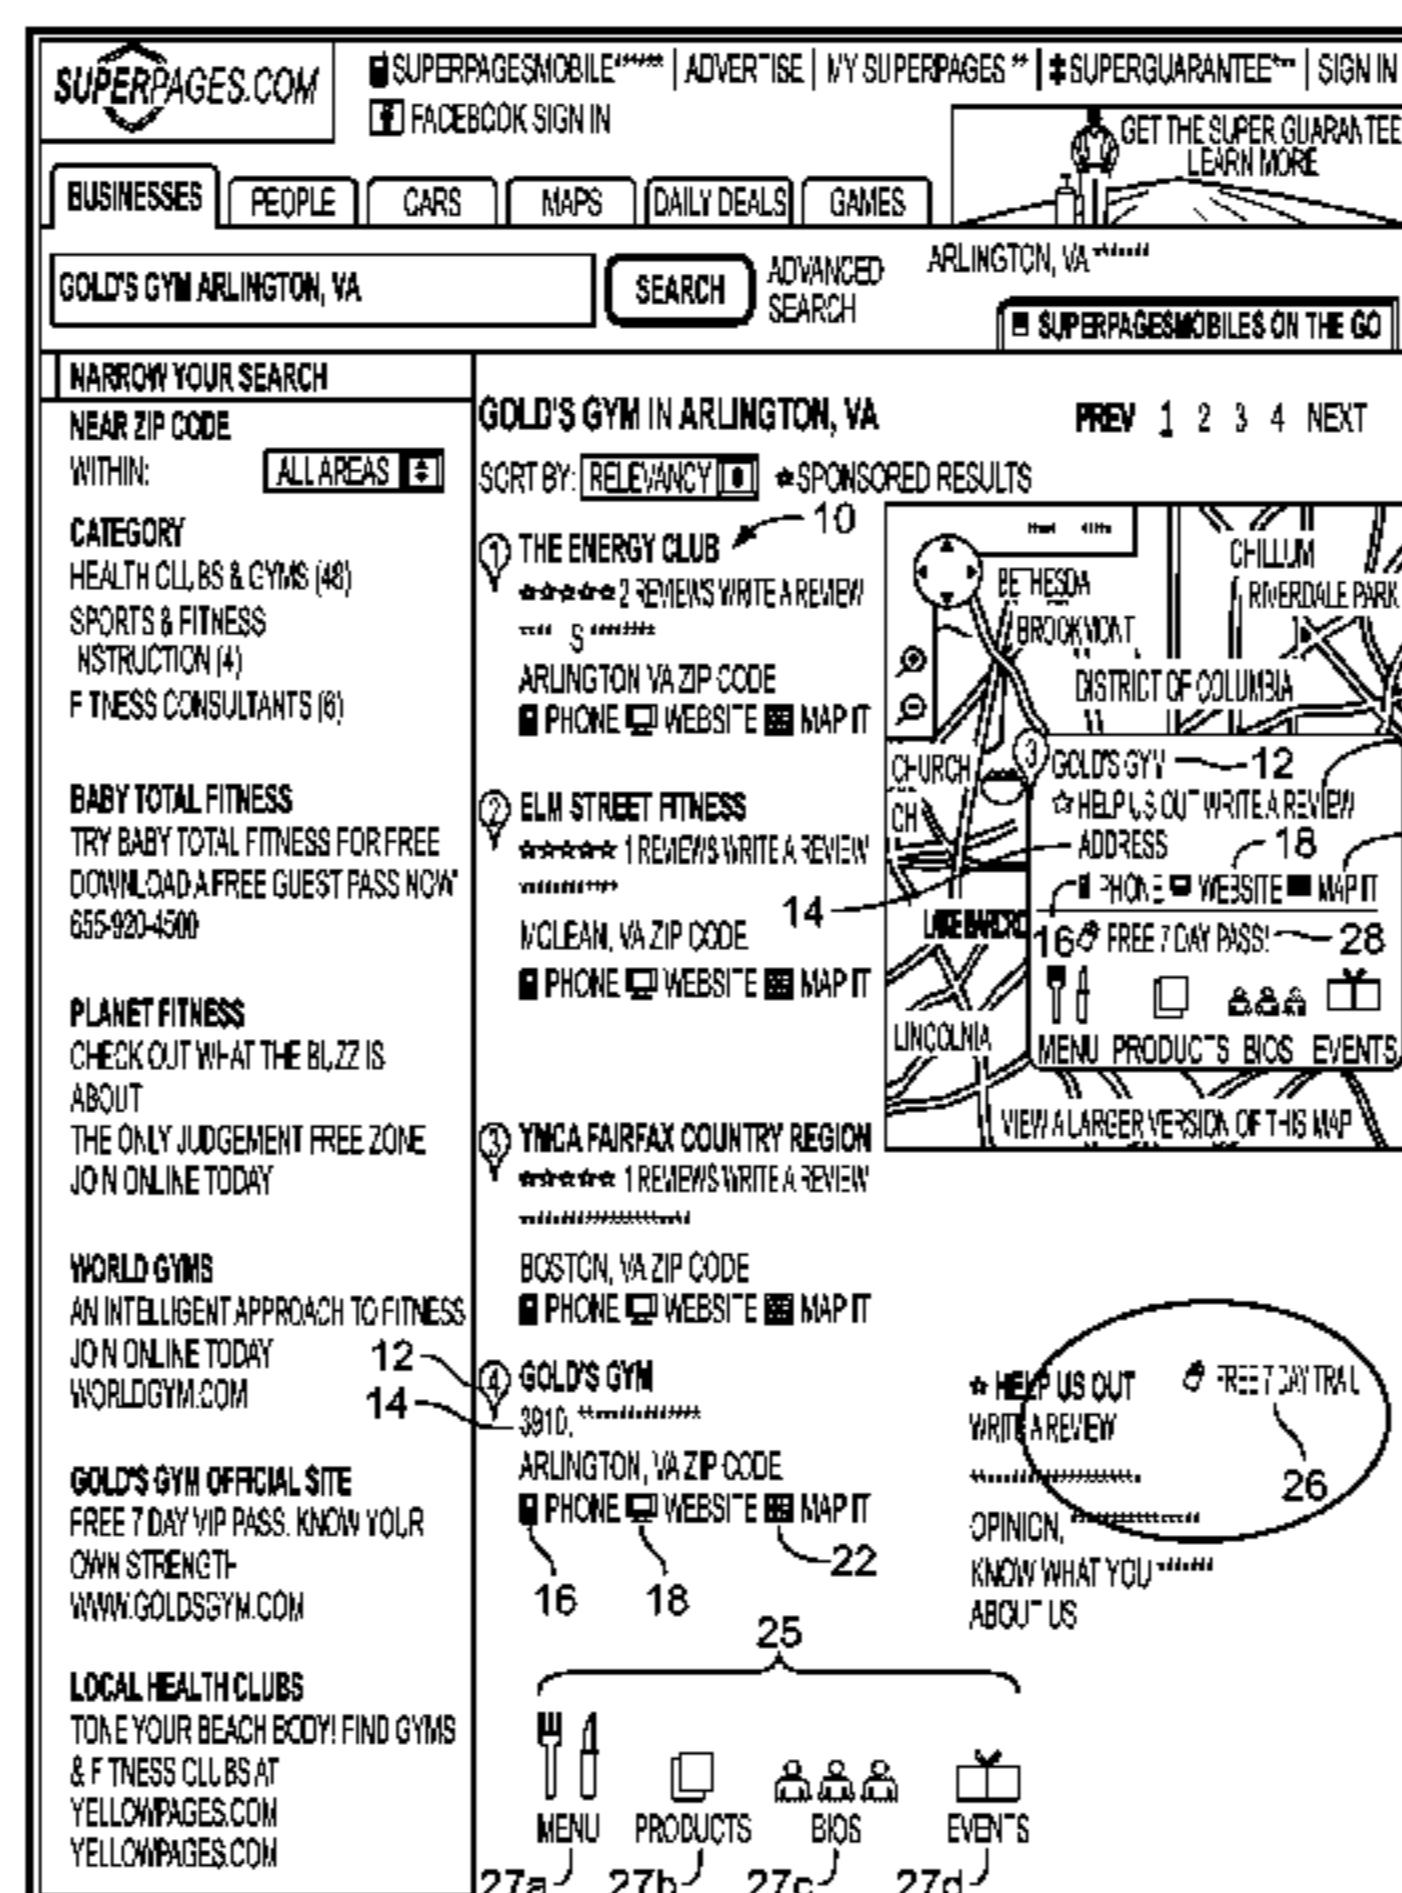 SUPERPAGES.COM
SUPERPAGESMOBILE | ADVERTISE | MY SUPERPAGES | SUPERGUARANTEE | SIGN IN
FACEBOOK SIGN IN
GET THE SUPER GUARANTEE
LEARN MORE
BUSINESSES PEOPLE CARS MAPS DAILY DEALS GAMES
GOLD'S GYM ARLINGTON, VA
SEARCH
ADVANCED
SEARCH
ARLINGTON, VA
SUPERPAGESMOBILES ON THE GO
NARROW YOUR SEARCH
NEAR ZIP CODE
WITHIN: ALL AREAS
CATEGORY
HEALTH CLUBS & GYMS (48)
SPORTS & FITNESS
INSTRUCTION (4)
FITNESS CONSULTANTS (6)
BABY TOTAL FITNESS
TRY BABY TOTAL FITNESS FOR FREE
DOWNLOAD A FREE GUEST PASS NOW*
655-920-4500
PLANET FITNESS
CHECK OUT WHAT THE BUZZ IS
ABOUT
THE ONLY JUDGEMENT FREE ZONE
JOIN ONLINE TODAY
WORLD GYMS
AN INTELLIGENT APPROACH TO FITNESS
JOIN ONLINE TODAY
WORLDGYM.COM
GOLD'S GYM OFFICIAL SITE
FREE 7 DAY VIP PASS. KNOW YOUR
OWN STRENGTH
WWW.GOLDSGYM.COM
LOCAL HEALTH CLUBS
TONE YOUR BEACH BODY! FIND GYMS
& FITNESS CLUBS AT
YELLOWPAGES.COM
YELLOWPAGES.COM
GOLD'S GYM IN ARLINGTON, VA
PREV 1 2 3 4 NEXT
SORT BY: RELEVANCY SPONSORED RESULTS
10
1 THE ENERGY CLUB
2 REVIEWS WRITE A REVIEW
S
ARLINGTON VA ZIP CODE
PHONE WEBSITE MAP IT
2 ELM STREET FITNESS
1 REVIEWS WRITE A REVIEW
MCLEAN, VA ZIP CODE
PHONE WEBSITE MAP IT
14
3 YMCA FAIRFAX COUNTRY REGION
1 REVIEWS WRITE A REVIEW
BOSTON, VA ZIP CODE
PHONE WEBSITE MAP IT
12
4 GOLD'S GYM
14
3910,
ARLINGTON, VA ZIP CODE
PHONE WEBSITE MAP IT
16 18 22
CHILLUM
BETHESDA
RIVERDALE PARK
BROOKMONT
DISTRICT OF COLUMBIA
CHURCH
CH
LAKE BARCRO
LINCOLNIA
3
GOLD'S GYM 12
HELP US OUT WRITE A REVIEW
ADDRESS 18
PHONE WEBSITE MAP IT
16 FREE 7 DAY PASS! 28
MENU PRODUCTS BIOS EVENTS
VIEW A LARGER VERSION OF THIS MAP
HELP US OUT
WRITE A REVIEW
FREE 7 DAY TRAIL
26
OPINION,
KNOW WHAT YOU
ABOUT US
25
MENU PRODUCTS BIOS EVENTS
27a 27b 27c 27d